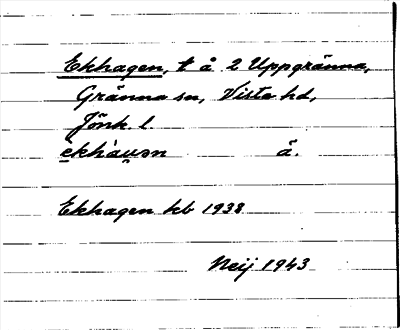 Ekhagen, t å 2 Uppgränna,
Gränna sn, Vista hd,
Jönk. l.
å.
Ekhagen kb 1938
Neij 1943